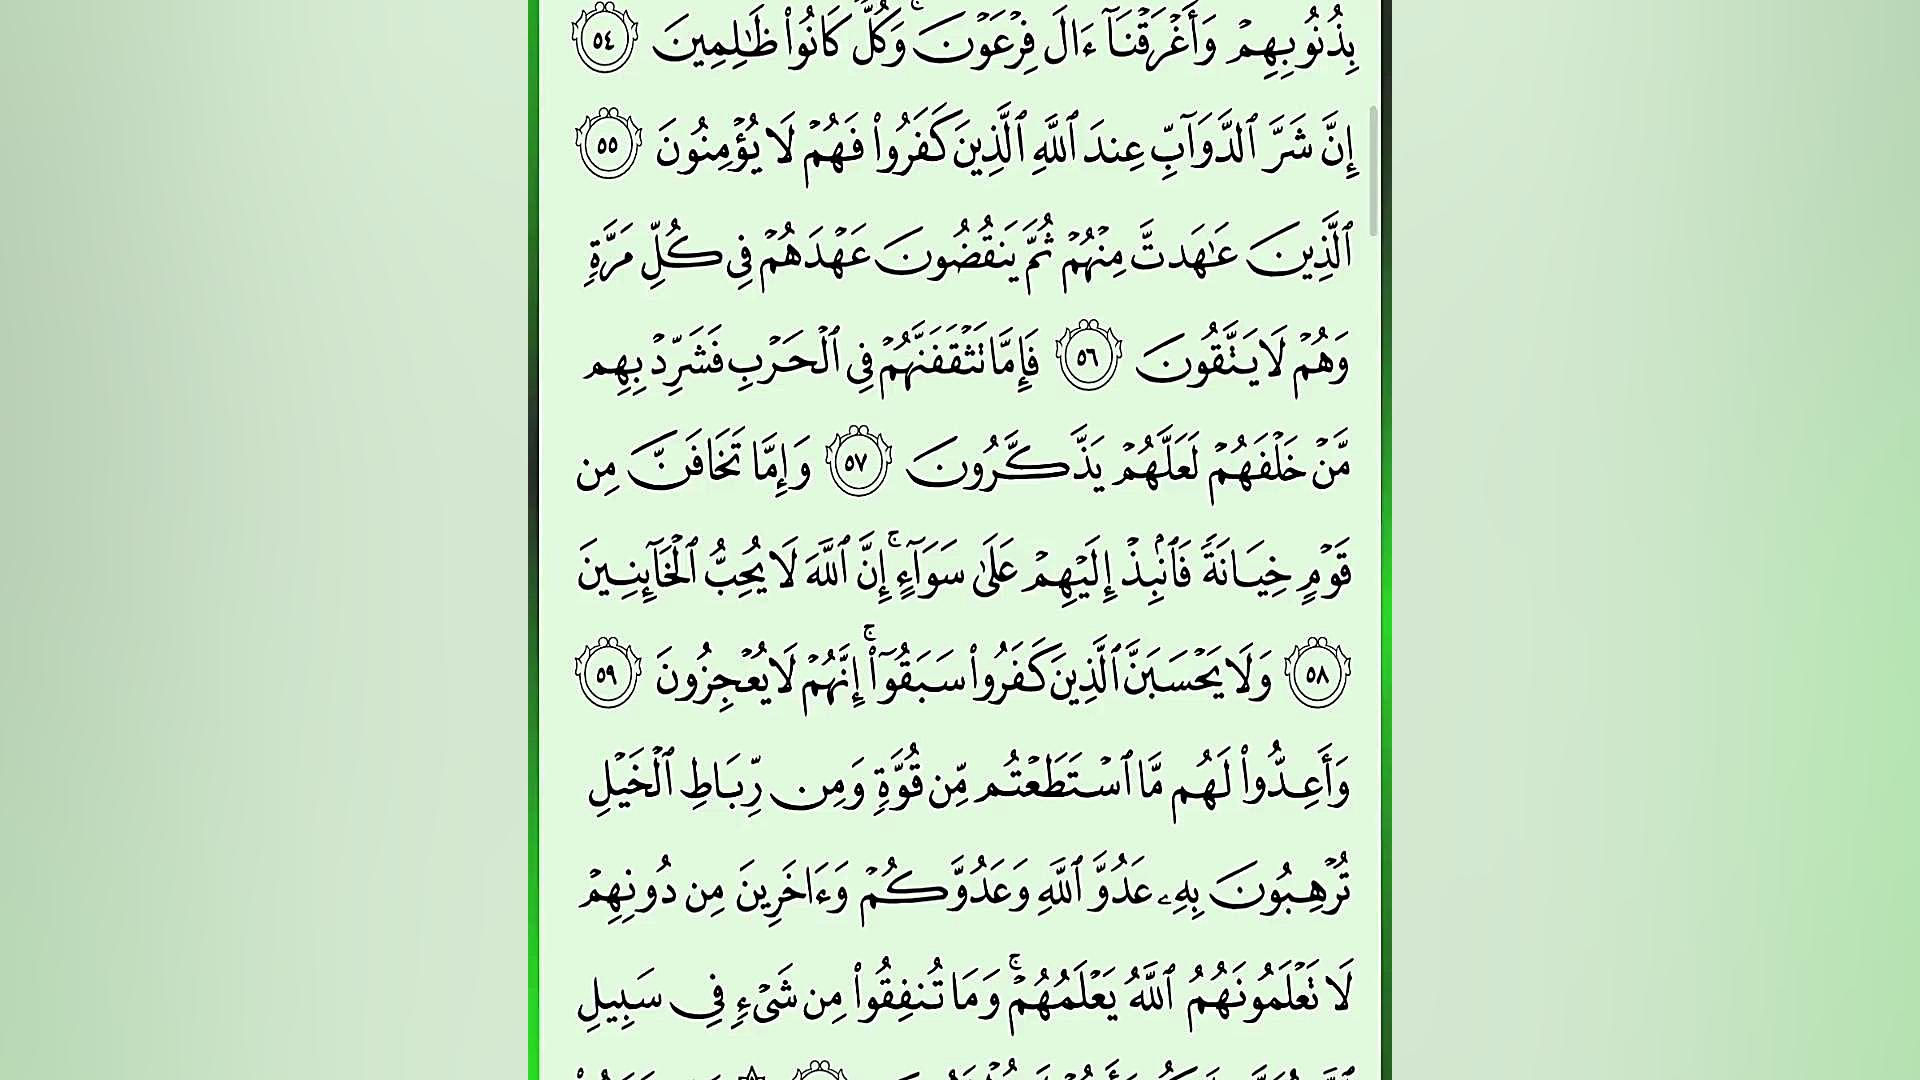 بِذُنُوبِهِمْ وَأَغْرَقْنَآ ءَالَ فِرْعَوْنَ ۚ وَكُلٌّ كَانُوا۟ ظَـٰلِمِينَ ٥٤
إِنَّ شَرَّ ٱلدَّوَآبِّ عِندَ ٱللَّهِ ٱلَّذِينَ كَفَرُوا۟ فَهُمْ لَا يُؤْمِنُونَ ٥٥
ٱلَّذِينَ عَـٰهَدتَّ مِنْهُمْ ثُمَّ يَنقُضُونَ عَهْدَهُمْ فِى كُلِّ مَرَّةٍ
وَهُمْ لَا يَتَّقُونَ ٥٦ فَإِمَّا تَثْقَفَنَّهُمْ فِى ٱلْحَرْبِ فَشَرِّدْ بِهِم
مَّنْ خَلْفَهُمْ لَعَلَّهُمْ يَذَّكَّرُونَ ٥٧ وَإِمَّا تَخَافَنَّ مِن
قَوْمٍ خِيَانَةً فَٱنۢبِذْ إِلَيْهِمْ عَلَىٰ سَوَآءٍ ۚ إِنَّ ٱللَّهَ لَا يُحِبُّ ٱلْخَآئِنِينَ
٥٨ وَلَا يَحْسَبَنَّ ٱلَّذِينَ كَفَرُوا۟ سَبَقُوٓا۟ ۚ إِنَّهُمْ لَا يُعْجِزُونَ ٥٩
وَأَعِدُّوا۟ لَهُم مَّا ٱسْتَطَعْتُم مِّن قُوَّةٍ وَمِن رِّبَاطِ ٱلْخَيْلِ
تُرْهِبُونَ بِهِۦ عَدُوَّ ٱللَّهِ وَعَدُوَّكُمْ وَءَاخَرِينَ مِن دُونِهِمْ
لَا تَعْلَمُونَهُمُ ٱللَّهُ يَعْلَمُهُمْ ۚ وَمَا تُنفِقُوا۟ مِن شَىْءٍ فِى سَبِيلِ